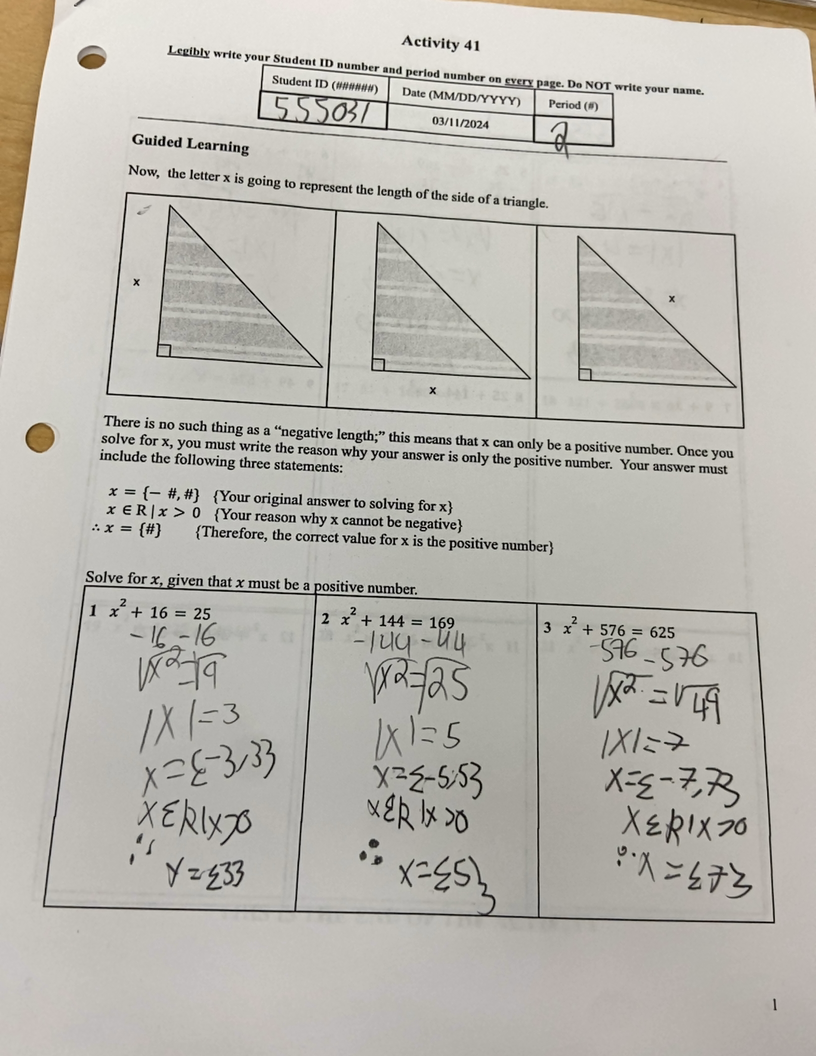 Activity 41
Legibly write your Student ID number and period number on every page. Do NOT write your name.
Student ID (######) Date (MM/DD/YYYY) Period (#)
555031 03/11/2024 2
Guided Learning
Now, the letter x is going to represent the length of the side of a triangle.
x
x
x
There is no such thing as a “negative length;” this means that x can only be a positive number. Once you
solve for x, you must write the reason why your answer is only the positive number. Your answer must
include the following three statements:
x = {− #, #} {Your original answer to solving for x}
x ∈ R | x > 0 {Your reason why x cannot be negative}
∴ x = {#} {Therefore, the correct value for x is the positive number}
Solve for x, given that x must be a positive number.
1 x² + 16 = 25
-16 -16
√x² = √9
|x| = 3
x = {-3,3}
x ∈ R | x > 0
∴ x = {3}
2 x² + 144 = 169
-144 -44
√x² = √25
|x| = 5
x = {-5,5}
x ∈ R | x > 0
∴ x = {5}
3 x² + 576 = 625
-576 -576
√x² = √49
|x| = 7
x = {-7,7}
x ∈ R | x > 0
∴ x = {7}
1